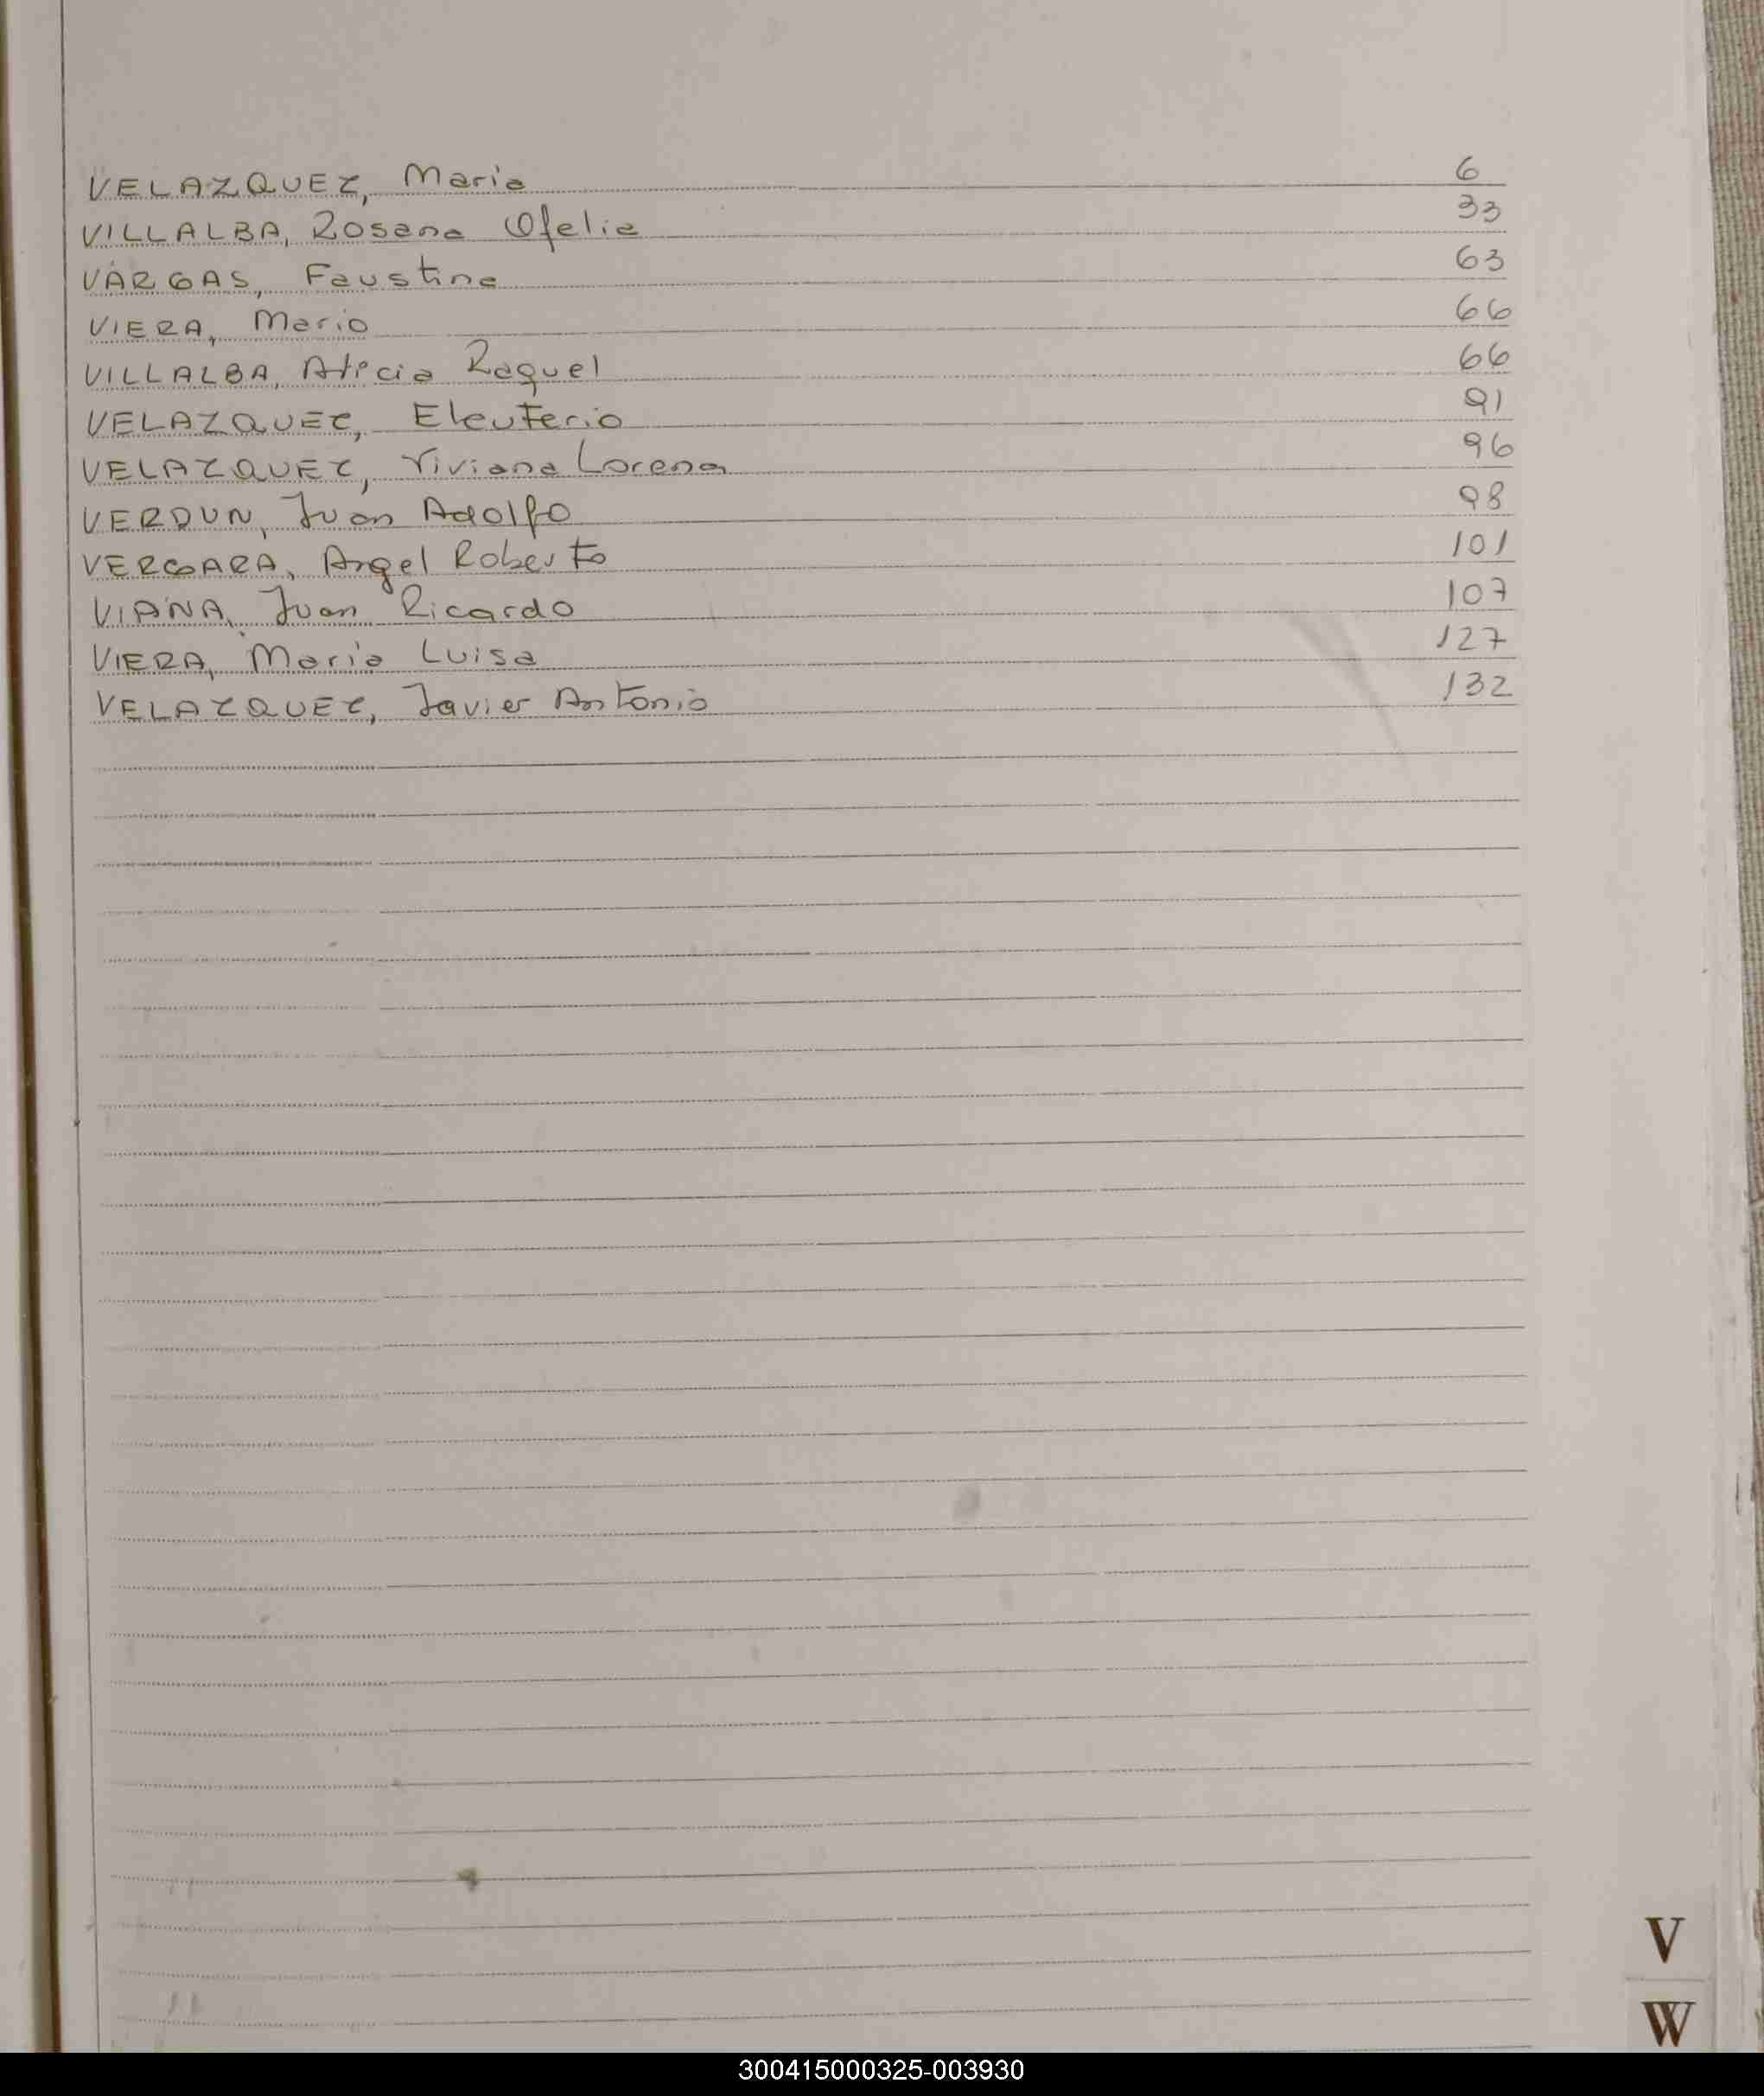 VELAZQUEZ, Maria 6
VILLALBA, Rosana Ofelia 33
VARGAS, Faustina 63
VIERA, Mario 66
VILLALBA, Alicia Raquel 66
VELAZQUEZ, Eleuterio 91
VELAZQUEZ, Viviana Lorena 96
VERDUN, Juan Adolfo 98
VERGARA, Angel Roberto 101
VIANA, Juan Ricardo 107
VIERA, Maria Luisa 127
VELAZQUEZ, Javier Antonio 132
V
W
300415000325-003930